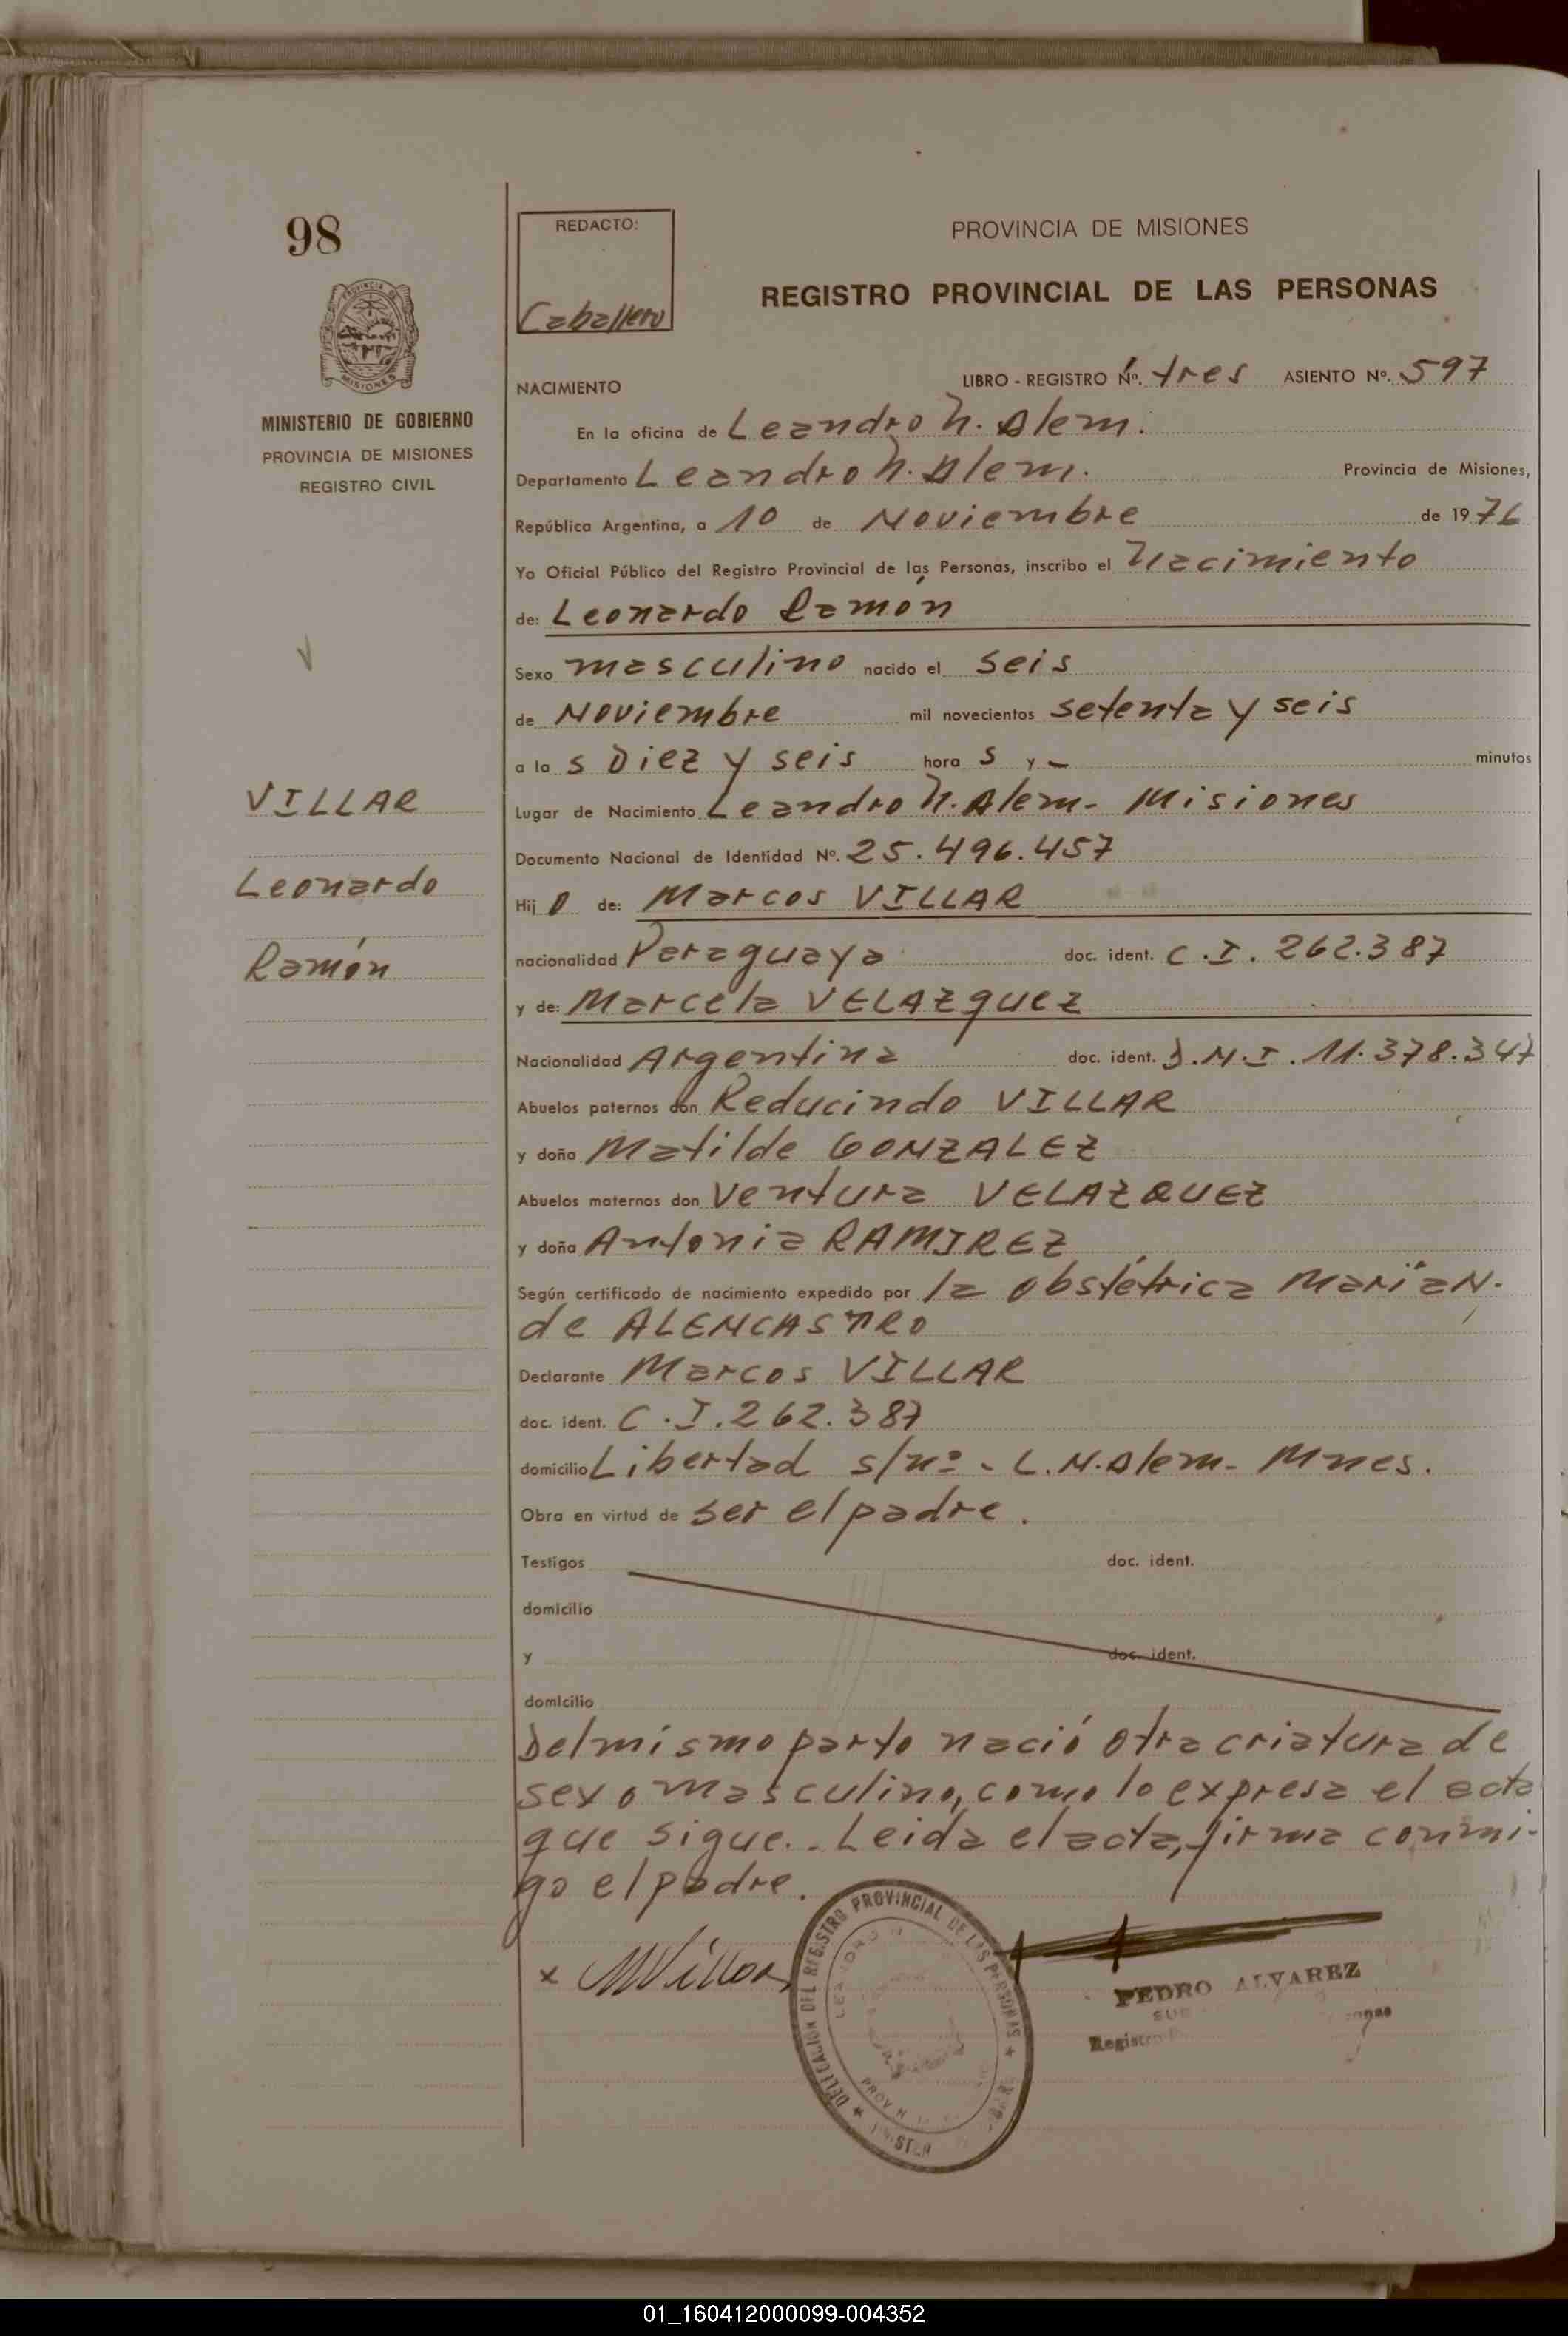 98
REDACTO:
Caballero
PROVINCIA DE MISIONES
REGISTRO PROVINCIAL DE LAS PERSONAS
MINISTERIO DE GOBIERNO
PROVINCIA DE MISIONES
REGISTRO CIVIL
NACIMIENTO LIBRO - REGISTRO Nº. tres ASIENTO Nº. 597
En la oficina de Leandro N. Alem.
Departamento Leandro N. Alem. Provincia de Misiones,
República Argentina, a 10 de Noviembre de 1976
Yo Oficial Público del Registro Provincial de las Personas, inscribo el Nacimiento
de: Leonardo Ramón
Sexo masculino nacido el seis
de Noviembre mil novecientos setenta y seis
a las Diez y seis horas y — minutos
VILLAR
Lugar de Nacimiento Leandro N. Alem - Misiones
Documento Nacional de Identidad Nº. 25.496.457
Leonardo
Hijo de: Marcos VILLAR
Ramón
nacionalidad Paraguaya doc. ident. C.I. 262.387
y de: Marcela VELAZquez
Nacionalidad Argentina doc. ident. D.N.I. 11.378.347
Abuelos paternos don Reducindo VILLAR
y doña Matilde GONZALEZ
Abuelos maternos don Ventura VELAZQUEZ
y doña Antonia RAMIREZ
Según certificado de nacimiento expedido por la obstétrica María N.
de ALENCASTRO
Declarante Marcos VILLAR
doc. ident. C.I. 262.387
domicilio Libertad s/nº - L.N. Alem - Mnes.
Obra en virtud de ser el padre.
Testigos doc. ident.
domicilio
y doc. ident.
domicilio
Del mismo parto nació otra criatura de
sexo masculino, como lo expresa el acta
que sigue.. Leida el acta, firma conmi-
go el padre.
x MVillar
DELEGACION DEL REGISTRO PROVINCIAL DE LAS PERSONAS
PEDRO ALVAREZ
01_160412000099-004352